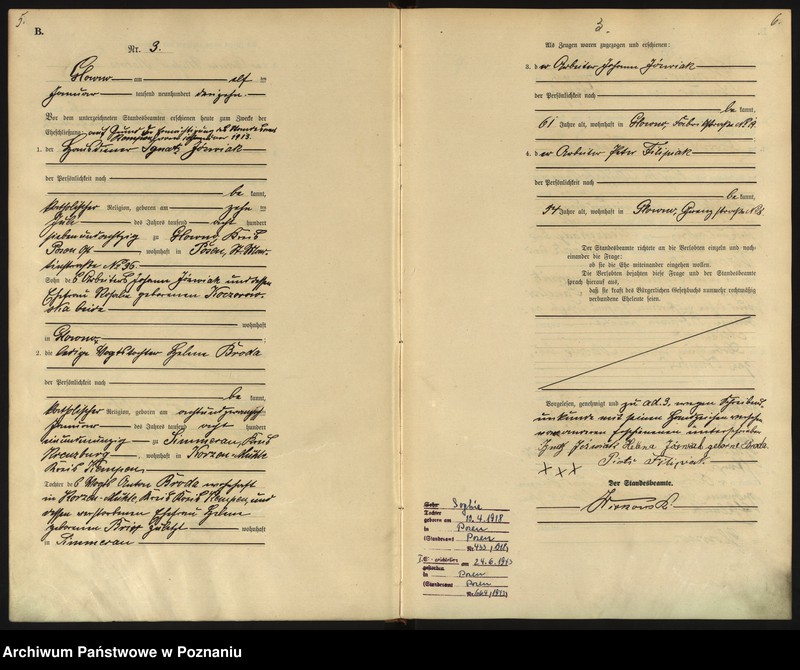 5.
B.
Nr. 3.
Glowno am elf ten
Januar tausend neunhundert dreizehn.
Vor dem unterzeichneten Standesbeamten erschienen heute zum Zwecke der
Eheschließung: auf Grund der Ermächtigung des Standesamts
1913.
1. der Hausdiener Ignatz Jóźwiak
der Persönlichkeit nach
be kannt,
katholischer Religion, geboren am zehn ten
Juli des Jahres tausend acht hundert
siebenundachtzig zu Glowno, Kreis
Posen Ost, wohnhaft in Posen, St. Mar-
tinstraße No 36.
Sohn des Arbeiters Johann Jóźwiak und dessen
Ehefrau Rosalie geborenen
beide
wohnhaft
in Glowno;
2. die ledige Vogtstochter Helene Broda
der Persönlichkeit nach
be kannt,
katholischer Religion, geboren am achtundzwanzigsten
Januar des Jahres tausend acht hundert
neunzig zu Simmenau, Kreis
Kreuzburg, wohnhaft in Korzen-Mühle
Kreis Kempen
Tochter des Vogts Anton Broda wohnhaft
in Korzen-Mühle, Kreis Kempen, und
dessen verstorbenen Ehefrau Helene
geborenen zuletzt wohnhaft
in Simmenau
6.
3.
Als Zeugen waren zugezogen und erschienen:
3. der Arbeiter Johann Jóźwiak
der Persönlichkeit nach
be kannt,
61 Jahre alt, wohnhaft in Glowno,
4. der Arbeiter Peter Filipiak
der Persönlichkeit nach
be kannt,
34 Jahre alt, wohnhaft in Glowno, Grenzstraße No 8.
Der Standesbeamte richtete an die Verlobten einzeln und nach-
einander die Frage:
ob sie die Ehe miteinander eingehen wollen.
Die Verlobten bejahten diese Frage und der Standesbeamte
sprach hierauf aus,
daß sie kraft des Bürgerlichen Gesetzbuchs nunmehr rechtmäßig
verbundene Eheleute seien.
Vorgelesen, genehmigt und zu ad. 3, wegen Schreibens-
unkunde mit seinen Handzeichen versehen
von anderen Erschienenen unterschrieben
Ignatz Jóźwiak. Helena Jóźwiak geborene Broda.
+++ Piotr Filipiak.
Der Standesbeamte.
Sohn Sophie
Tochter
geboren am 10.4.1918
in Posen
(Standesamt Posen
Nr. 433/1918)
am 24.6.1943
in Posen
(Standesamt Posen
Nr. 669/1943)
Archiwum Państwowe w Poznaniu